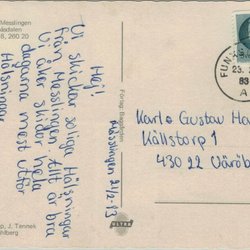 Messlingen
8, 260 20
Hej!
Vi skickar soliga Hälsningar
från Messlingen. Allt är bra
Vi åker skidor hela
dagarna mest utför
Hälsningar
Messlingen 21/2 83
Förlag:
ULTRA
p, J. Tennek
hlberg
FUN
23.
83
A
Karl Gustav Ha
Källstorp 1
43022 Väröb